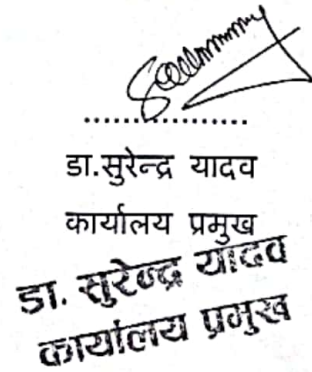 ................
डा.सुरेन्द्र यादव
कार्यालय प्रमुख
डा. सुरेन्द्र यादव
कार्यालय प्रमुख